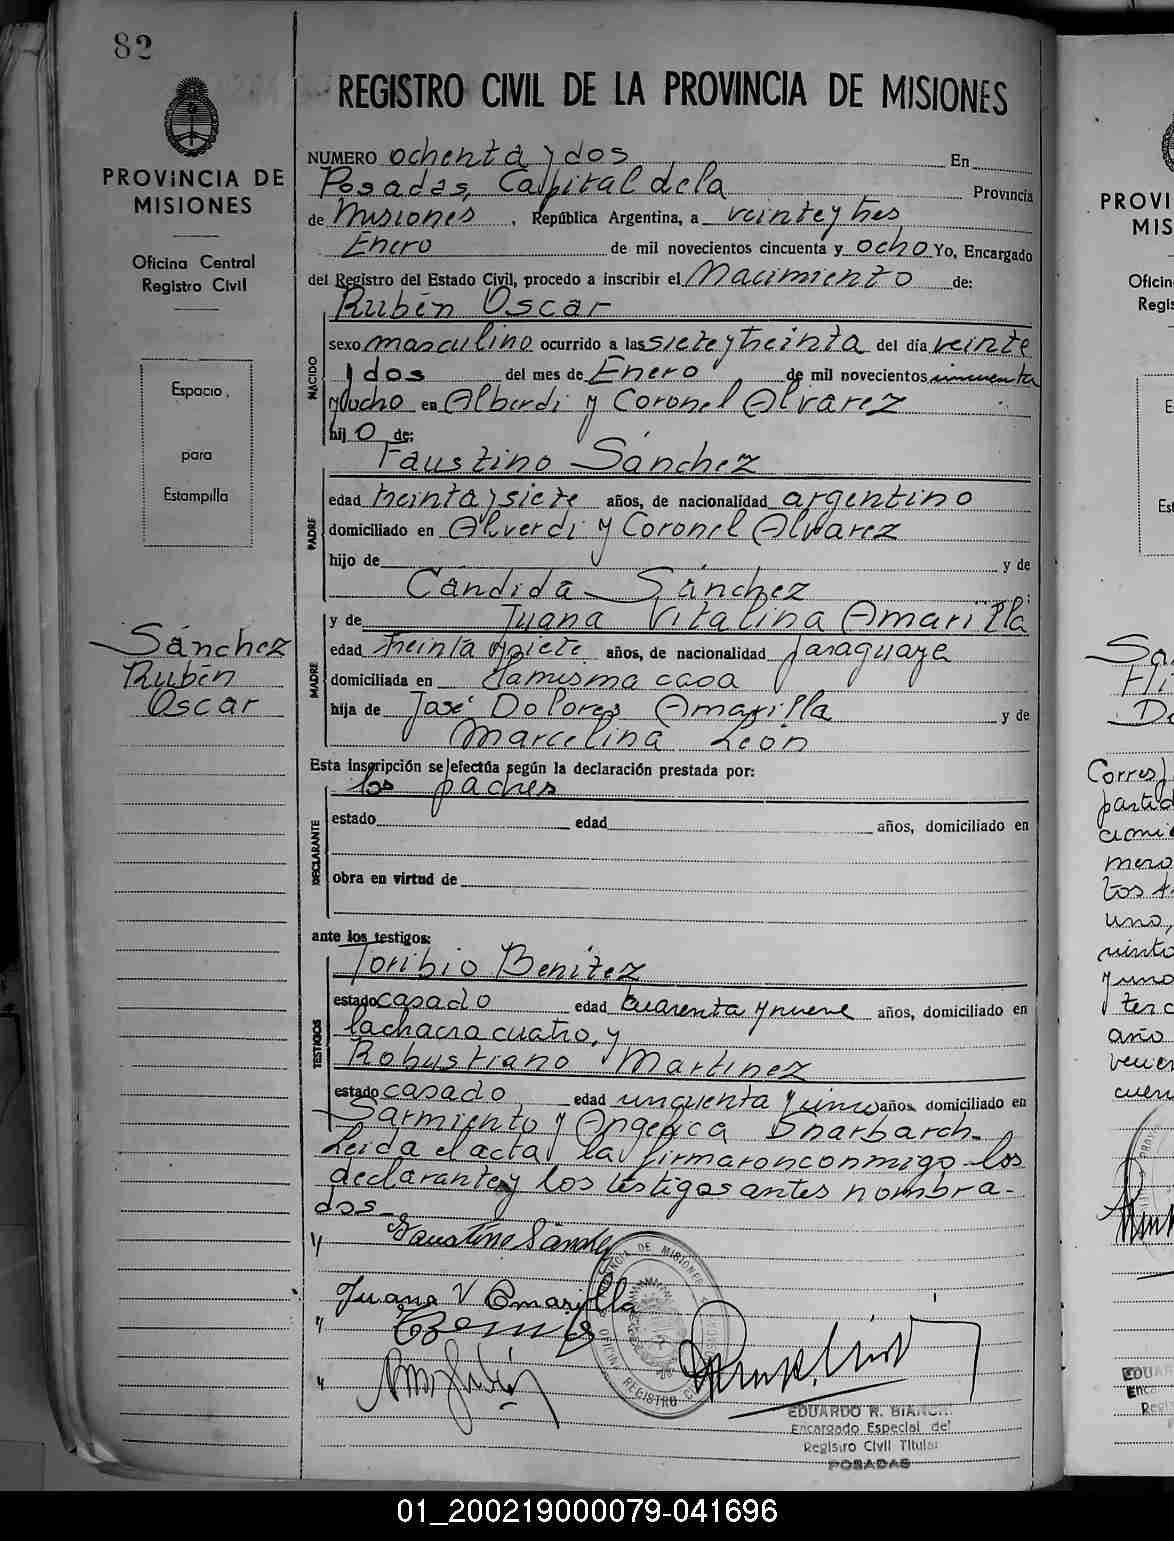 82
PROVINCIA DE
MISIONES
Oficina Central
Registro Civil
Espacio
para
Estampilla
Sánchez
Rubén
Oscar
REGISTRO CIVIL DE LA PROVINCIA DE MISIONES
NUMERO ochenta y dos En
Posadas, Capital de la Provincia
de Misiones, República Argentina, a veinte y tres
Enero de mil novecientos cincuenta y ocho Yo, Encargado
del Registro del Estado Civil, procedo a inscribir el Nacimiento de:
Rubén Oscar
NACIDO
sexo masculino ocurrido a las siete y treinta del día veinte
y dos del mes de Enero de mil novecientos cincuenta
y ocho en Alberdi y Coronel Alvarez
hijo de:
Faustino Sánchez
PADRE
edad treinta y siete años, de nacionalidad argentino
domiciliado en Alverdi y Coronel Alvarez
hijo de y de
Cándida Sánchez
y de Juana Vitalina Amarilla
MADRE
edad treinta y siete años, de nacionalidad paraguaya
domiciliada en la misma casa
hija de José Dolores Amarilla y de
Marcelina León
Esta inscripción se efectúa según la declaración prestada por:
los padres
DECLARANTE
estado edad años, domiciliado en
obra en virtud de
ante los testigos:
Toribio Benitez
TESTIGOS
estado casado edad cuarenta y nueve años, domiciliado en
la chacra cuatro, y
Robustiano Martinez
estado casado edad cincuenta y cinco años, domiciliado en
Sarmiento y Angelica
Leida el acta la firmaron conmigo los
declarantes y los testigos antes nombra-
dos-
Faustino Sánchez
Juana V Amarilla
PROVINCIA DE MISIONES
OFICINA REGISTRO CIVIL
EDUARDO R. BIANCHI
Encargado Especial del
Registro Civil Titular
POSADAS
PROVI
MIS
Oficin
Regis
E
Est
Sa
Fli
Do
Corres
partid
cimie
mero
uno,
y uno
año
cuen
EDUA
Enca
Regi
01_200219000079-041696